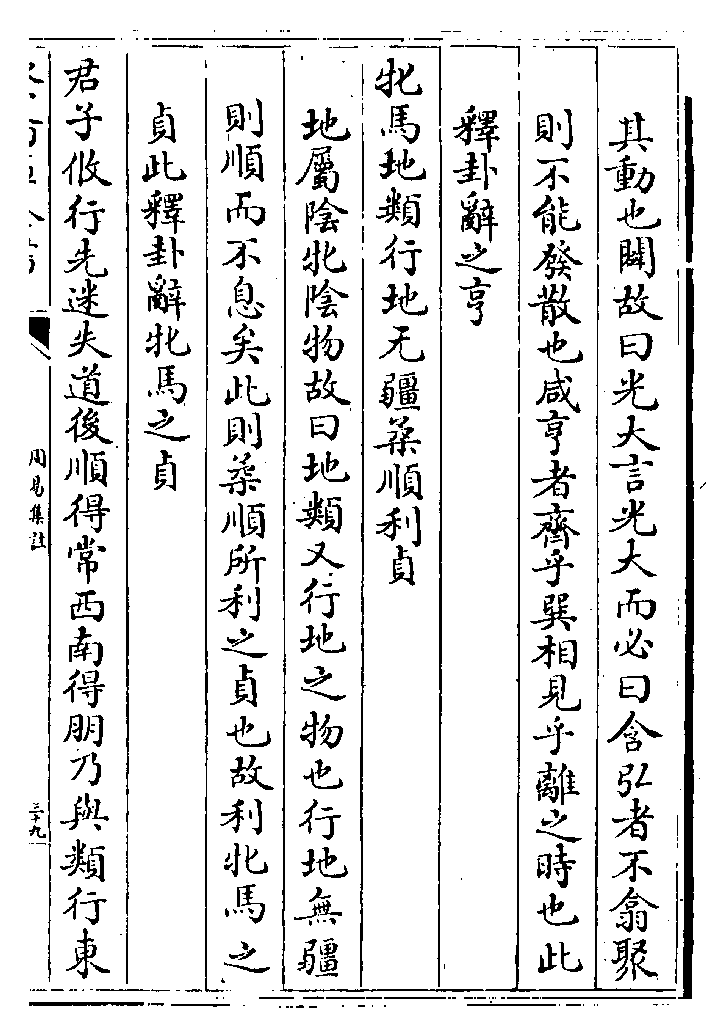 其動也闢故曰光大言光大而必曰含弘者不翕聚
則不能發散也咸亨者齊乎巽相見乎離之時也此
釋卦辭之亨
牝馬地類行地无疆葇順利貞
地屬陰牝陰物故曰地類又行地之物也行地無疆
則順而不息矣此則葇順所利之貞也故利牝馬之
貞此釋卦辭牝馬之貞
君子攸行先迷失道後順得常西南得朋乃與類行東
周易集註
三十九